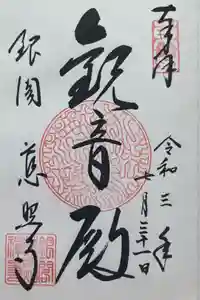 奉拝
令和三年
十月三十一日
観音殿
銀閣
慈照寺